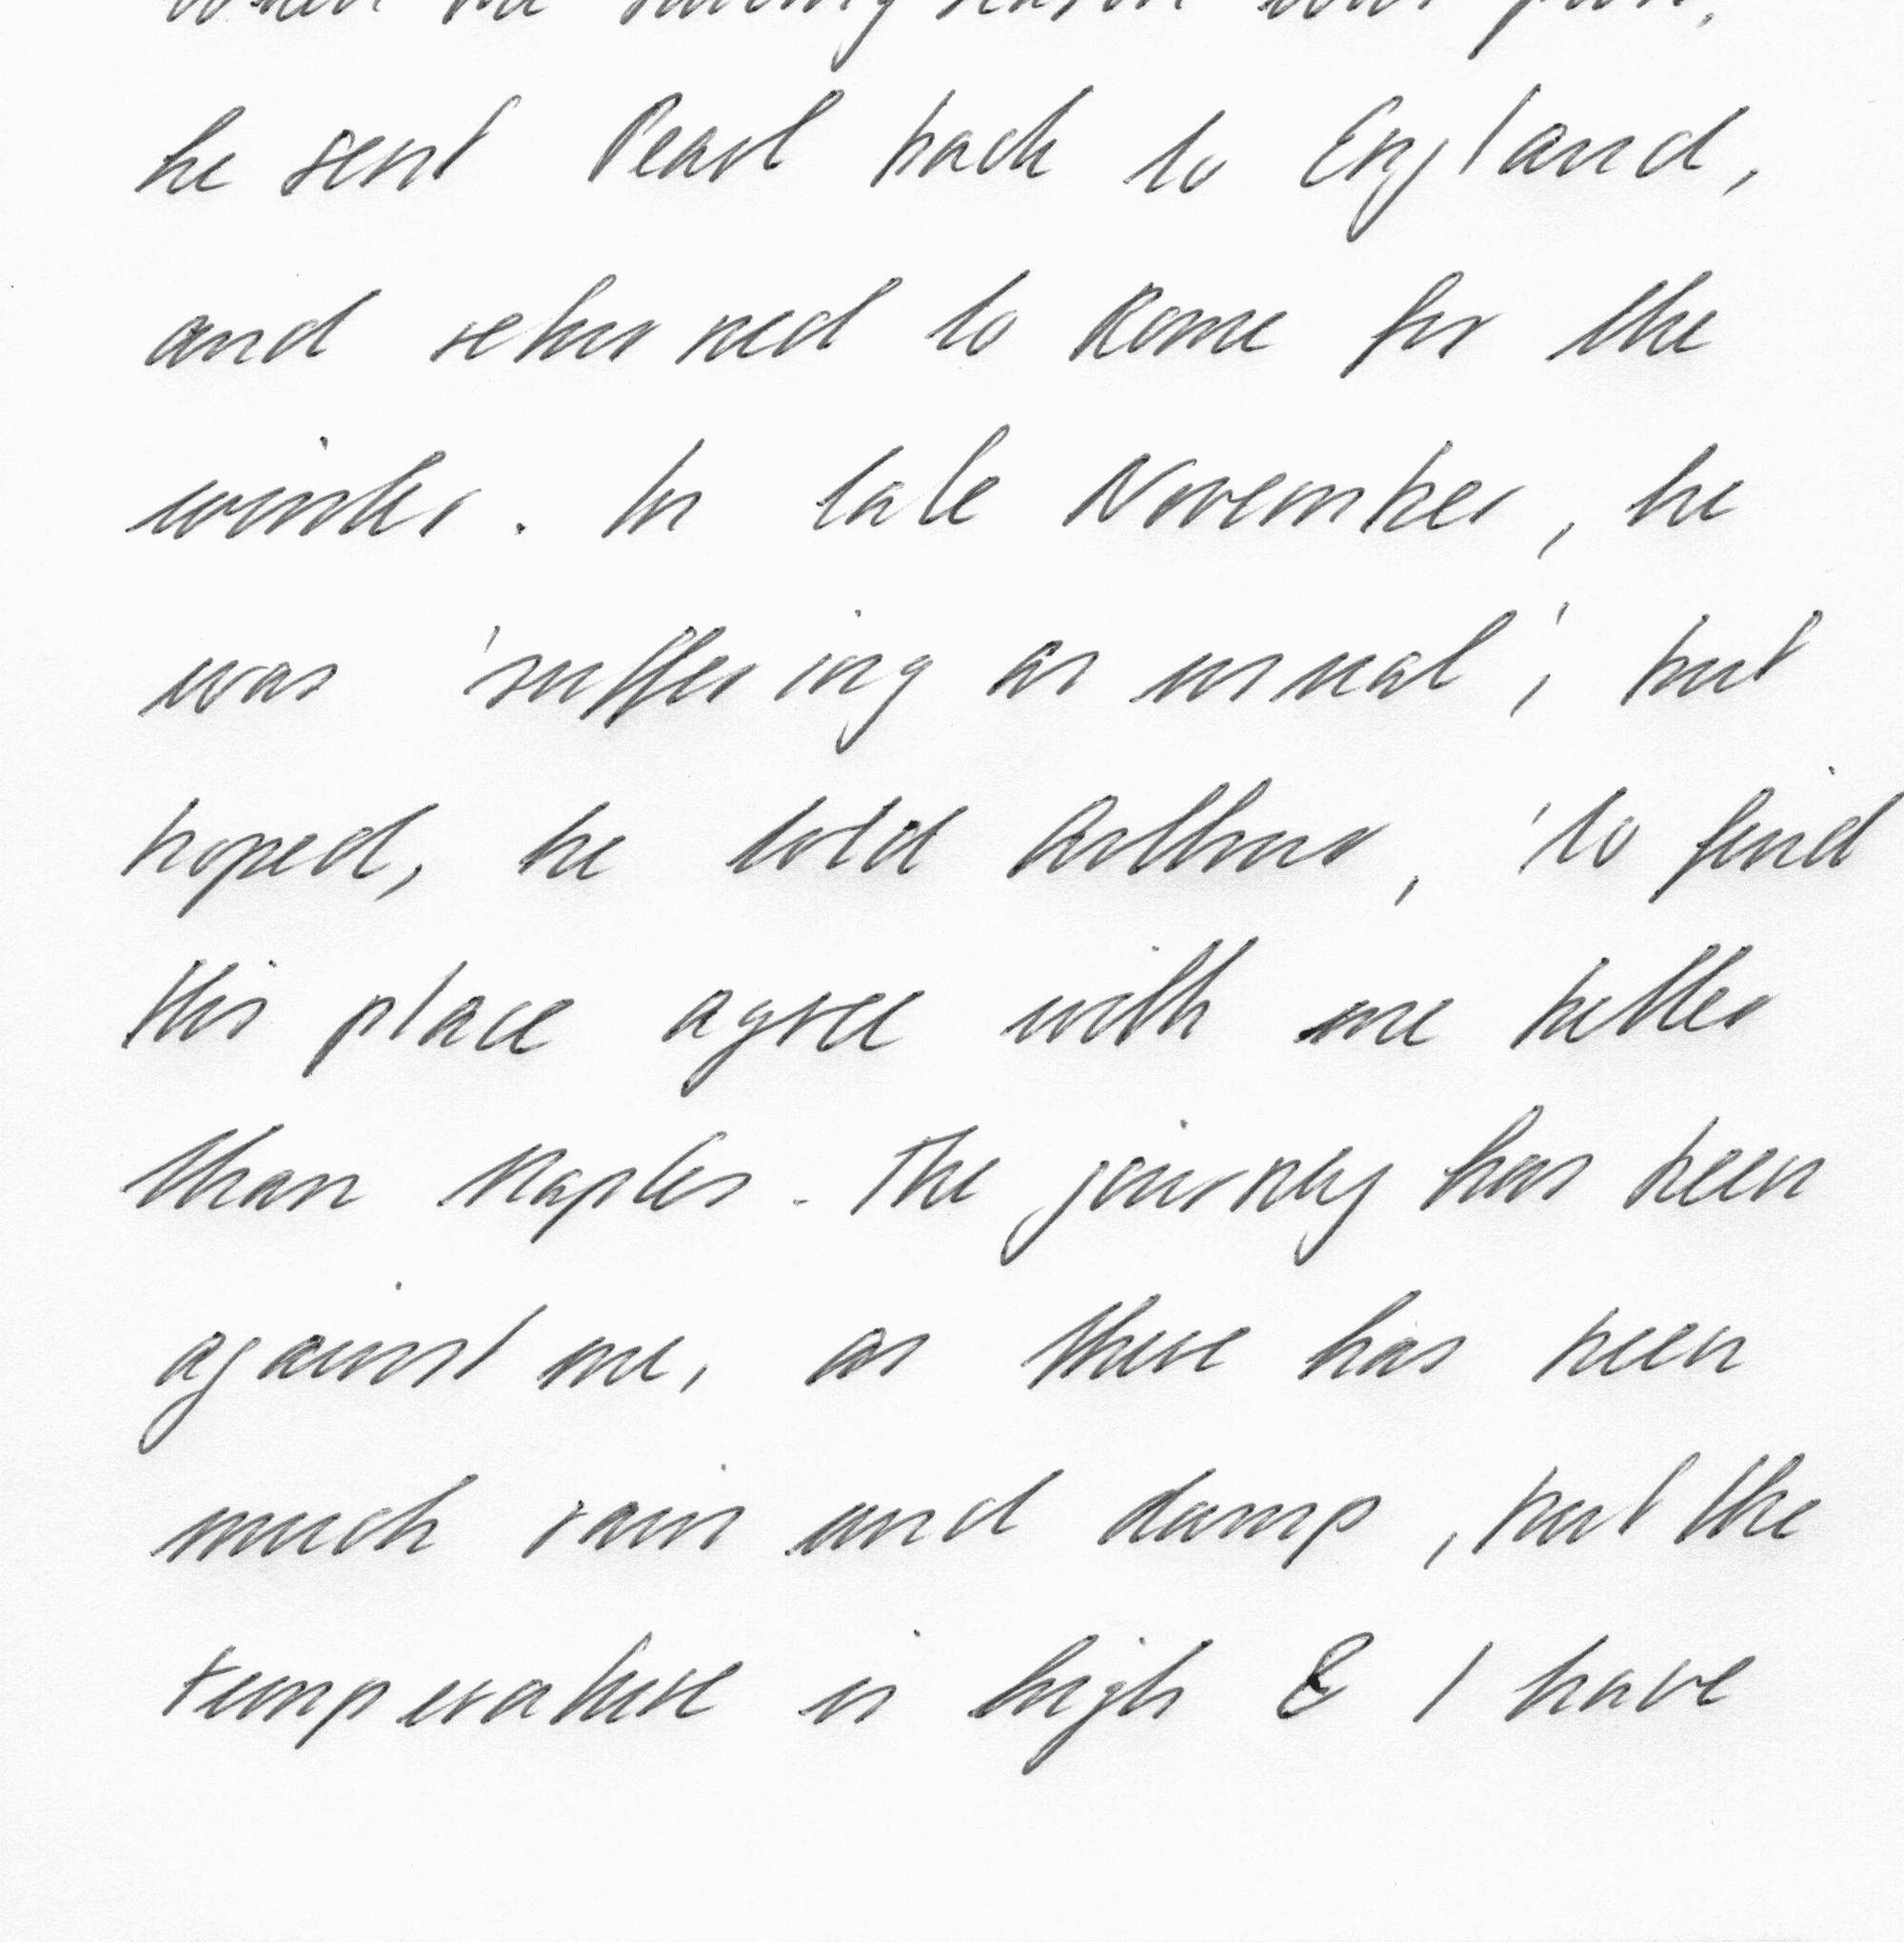 when the sailing season was past,
he sent Pearl back to England,
and returned to Rome for the
winter. In late November, he
was 'suffering as usual', but
hoped, he told Arthur, 'to find
this place agree with me better
than Naples. The journey has been
against me, as there has been
much rain and damp, but the
temperature is high & I have